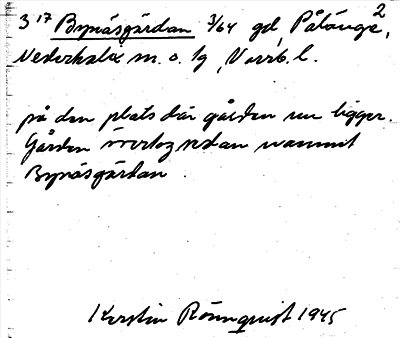 3 17 Bynäsgårdan 3/64 gd, Pålänge 2,
Nederkalix m. o. lg, Norrb. l.
på den plats där gården nu ligger.
Gården övertog redan namnet
Bynäsgårdan.
Kerstin Rönnquist 1945